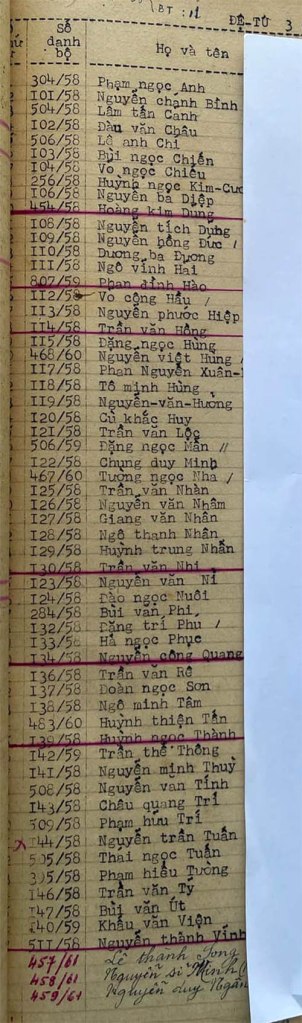 BT : 11
ĐỆ-TỨ 3
Số danh bộ Họ và tên
304/58 Phạm ngọc Anh
I0I/58 Nguyễn chanh Bỉnh
504/58 Lâm tấn Canh
I02/58 Đàu văn Châu
506/58 Lê anh Chi
I03/58 Bùi ngọc Chiến
I04/58 Vo ngọc Chiếu
256/58 Huỳnh ngọc Kim-Cươ
I06/58 Nguyễn bá Diệp
454/58 Hoàng kim Dung
I08/58 Nguyễn tích Dụng
I09/58 Nguyễn hồng Đức /
II0/58 Dương ba Đương
III/58 Ngô vinh Hai
807/59 Phan đình Hào
II2/58 Vo cộng Hầu /
II3/58 Nguyễn phước Hiệp
II4/58 Trần văn Hồng
II5/58 Đặng ngọc Hùng
468/60 Nguyễn việt Hùng /
II7/58 Phan Nguyễn Xuân-
II8/58 Tô minh Hùng
II9/58 Nguyễn-văn-Hương
I20/58 Cù khắc Huy
I2I/58 Trần văn Lộc
506/59 Đặng ngọc Mẫn //
I22/58 Chung duy Minh
467/60 Tương ngọc Nha /
I25/58 Trần văn Nhàn
I26/58 Nguyễn văn Nhâm
I27/58 Giang văn Nhân
I28/58 Ngô thanh Nhân
I29/58 Huỳnh trung Nhẫn
I30/58 Trần văn Nhi
I23/58 Nguyễn văn Nỉ
I24/58 Đào ngọc Nuôi
284/58 Bùi văn Phi
I32/58 Đặng trí Phu /
I33/58 Hà ngọc Phục
I34/58 Nguyễn công Quang
I36/58 Trần văn Rê
I37/58 Đoàn ngọc Sơn
I38/58 Ngô minh Tâm
483/60 Huỳnh thiện Tấn
I39/58 Huỳnh ngọc Thành
I42/59 Trần thế Thông
I4I/58 Nguyễn minh Thuỳ
508/58 Nguyễn van Tính
I43/58 Châu quang Trí
509/58 Phạm hữu Trí
I44/58 Nguyễn trần Tuấn
505/58 Thai ngọc Tuấn
395/58 Phạm hiếu Tường
I46/58 Trần văn Tý
I47/58 Bùi văn Út
I40/59 Khấu văn Viện
5II/58 Nguyễn thành Vinh
457/61 Lê thanh Tong
458/61 Nguyễn sĩ Minh
459/61 Nguyễn duy Ngân